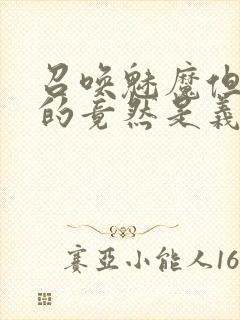 召唤魅魔但
的竟然是义
赛亚小能人16